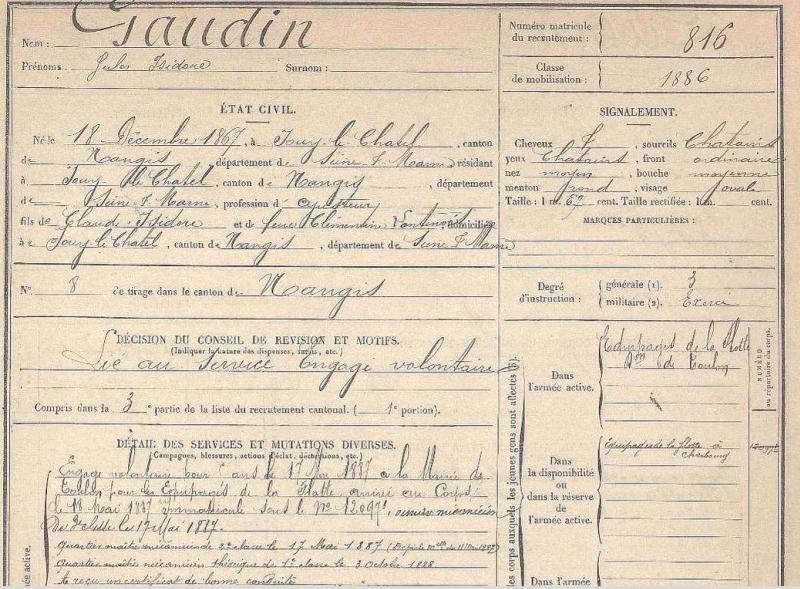 Nom : Gaudin
Prénoms : Jules Isidore Surnom :
Numéro matricule du recrutement : 816
Classe de mobilisation : 1886
ÉTAT CIVIL.
Né le 18 Décembre 1867, à Jouy-le-Chatel, canton
de Nangis, département de Seine & Marne, résidant
à Jouy-le-Chatel, canton de Nangis, département
de Seine & Marne, profession d'
fils de Claude Isidore et de feue Clémentine domiciliés
à Jouy-le-Chatel, canton de Nangis, département de Seine & Marne
N° 8 de tirage dans le canton de Nangis
SIGNALEMENT.
Cheveux sourcils Chatains
yeux Chatains, front ordinaire
nez moyen, bouche moyenne
menton rond, visage ovale
Taille : 1 m. 67 cent. Taille rectifiée : 1 m. cent.
MARQUES PARTICULIÈRES :
Degré d'instruction : générale (1). 3
militaire (2). Exercé
DÉCISION DU CONSEIL DE REVISION ET MOTIFS.
(Indiquer la nature des dispenses, sursis, etc.)
Lié au Service Engagé volontaire
Compris dans la 3e partie de la liste du recrutement cantonal. ( 1e portion).
DÉTAIL DES SERVICES ET MUTATIONS DIVERSES.
(Campagnes, blessures, actions d'éclat, décorations, etc.)
Engagé volontaire pour ans le 17 Mai 1887 à la Mairie de
Toulon pour les Equipages de la Flotte, arrivé au Corps
le 18 Mai 1887 immatriculé sous le N° ouvrier mécanicien
De classe le 17 Mai 1887.
quartier maître mécanicien de 2e classe le 17 Mai 1887
quartier maître mécanicien théorique de 1e classe le 3 Octobre 1888
a reçu un certificat de bonne conduite
les corps auxquels les jeunes gens sont affectés (6).
Dans l'armée active.
Equipages de la Flotte
Don de Toulon
NUMÉRO au répertoire du corps.
Dans la disponibilité ou dans la réserve de l'armée active.
Equipages de la flotte à Cherbourg
Dans l'armée
ée active.